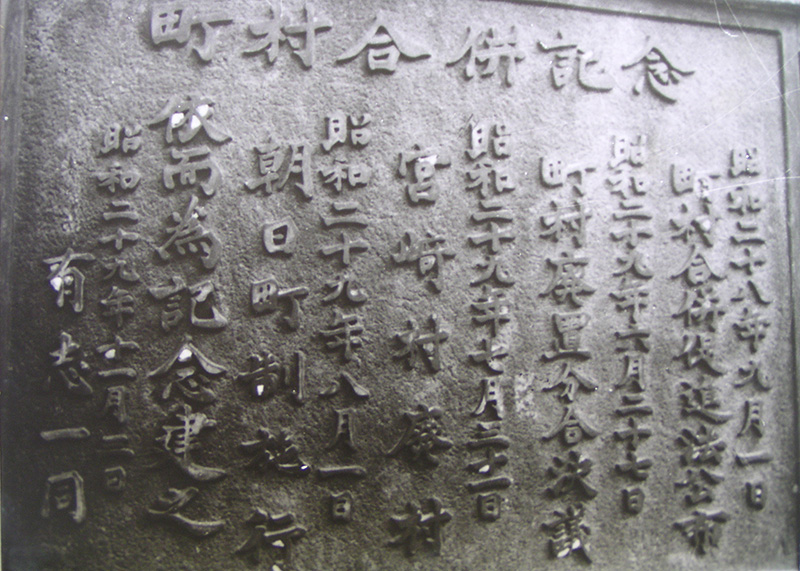 町村合併記念
昭和二十八年九月一日
町村合併促進法公布
昭和二十九年六月二十七日
町村廃置分合決議
昭和二十九年七月三十一日
宮崎村廃村
昭和二十九年八月一日
朝日町制施行
依而為記念建之
昭和二十九年十一月二日
有志一同